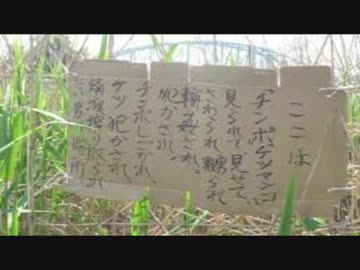 ここは
チンポケツマンコ
見られて、見せて、
さわられ、嬲られ
輪姦され。
犯かされ、
チンポしごかれ、
ケツ犯かされ、
精液搾り取られ